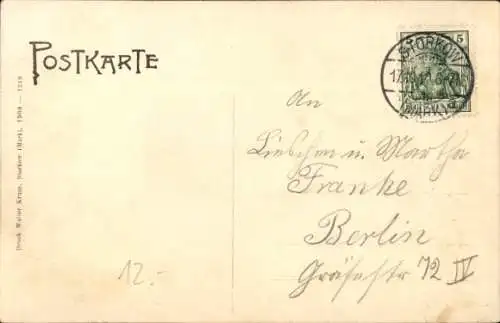 POSTKARTE
5
STORKOW
(MARK)
An
Lieschen u. Martha
Franke
Berlin
Gräfestr 72 IV
12.-
Druck Walter Kropp, Storkow (Mark), 1908 — 1218